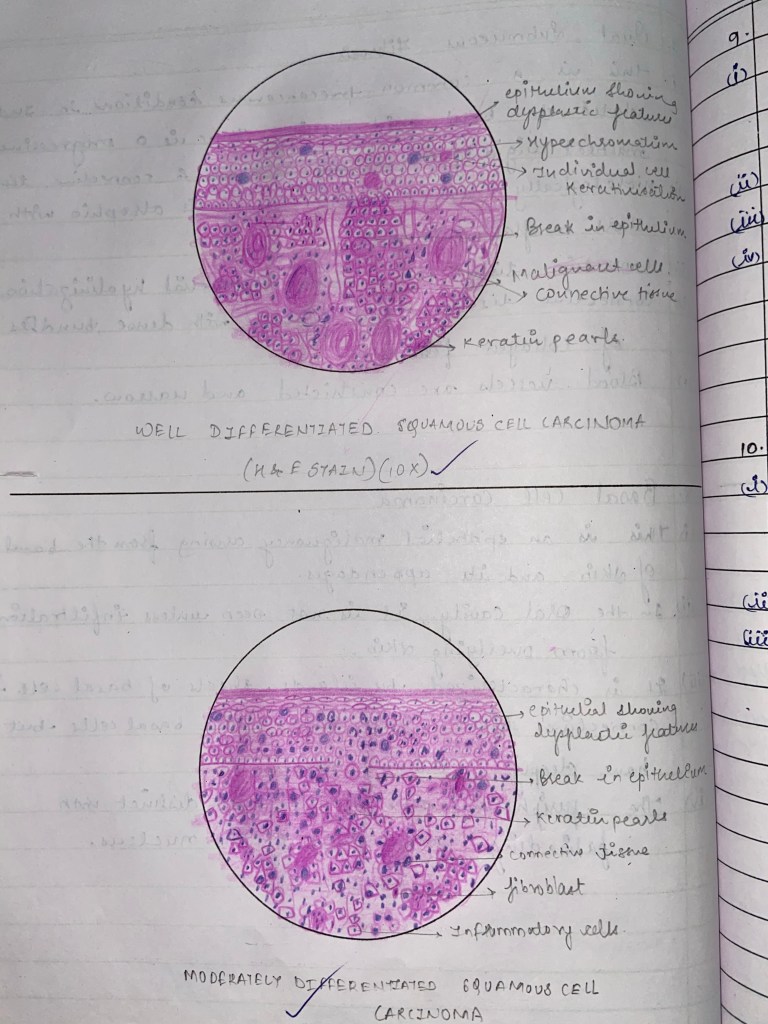 epithelium showing
dysplastic feature
Hyperchromatism
Individual cell
Keratinisation
Break in epithelium
Malignant cells
connective tissue
keratin pearls.
WELL DIFFERENTIATED SQUAMOUS CELL CARCINOMA
(H & E STAIN) (10X)
epithelial showing
dysplastic features
Break in epithelium
Keratin pearls
connective tissue
fibroblast
Inflammatory cells
MODERATELY DIFFERENTIATED SQUAMOUS CELL
CARCINOMA
9.
(i)
(ii)
(iii)
(iv)
10.
(i)
(ii
(iii